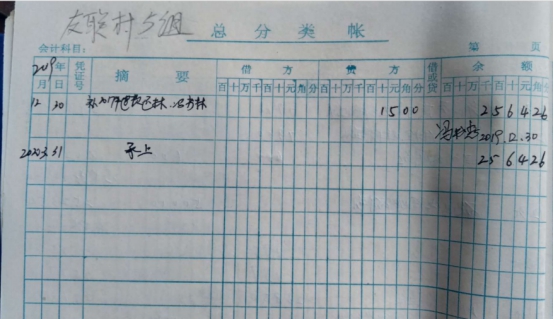 友联村5组 总分类帐
会计科目: 第 页
2019年 凭证号 摘要 借方 贷方 借或贷 余额
月 日 百十万千百十元角分 百十万千百十元角分 百十万千百十元角分
12 20 1500 256426
2019.12.30
2020.3.31 承上 256426